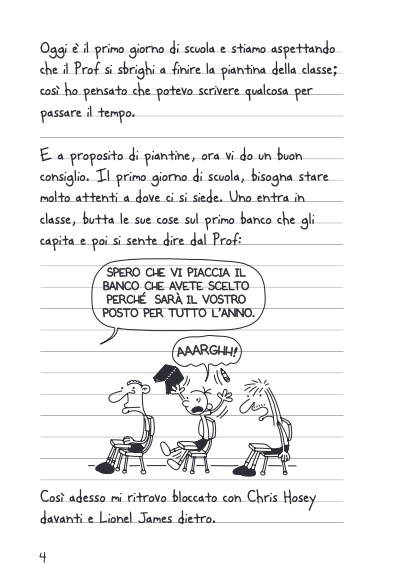 Oggi è il primo giorno di scuola e stiamo aspettando
che il Prof si sbrighi a finire la piantina della classe;
così ho pensato che potevo scrivere qualcosa per
passare il tempo.
E a proposito di piantine, ora vi do un buon
consiglio. Il primo giorno di scuola, bisogna stare
molto attenti a dove ci si siede. Uno entra in
classe, butta le sue cose sul primo banco che gli
capita e poi si sente dire dal Prof:
SPERO CHE VI PIACCIA IL
BANCO CHE AVETE SCELTO
PERCHÉ SARÀ IL VOSTRO
POSTO PER TUTTO L'ANNO.
AAARGHH!
Così adesso mi ritrovo bloccato con Chris Hosey
davanti e Lionel James dietro.
4